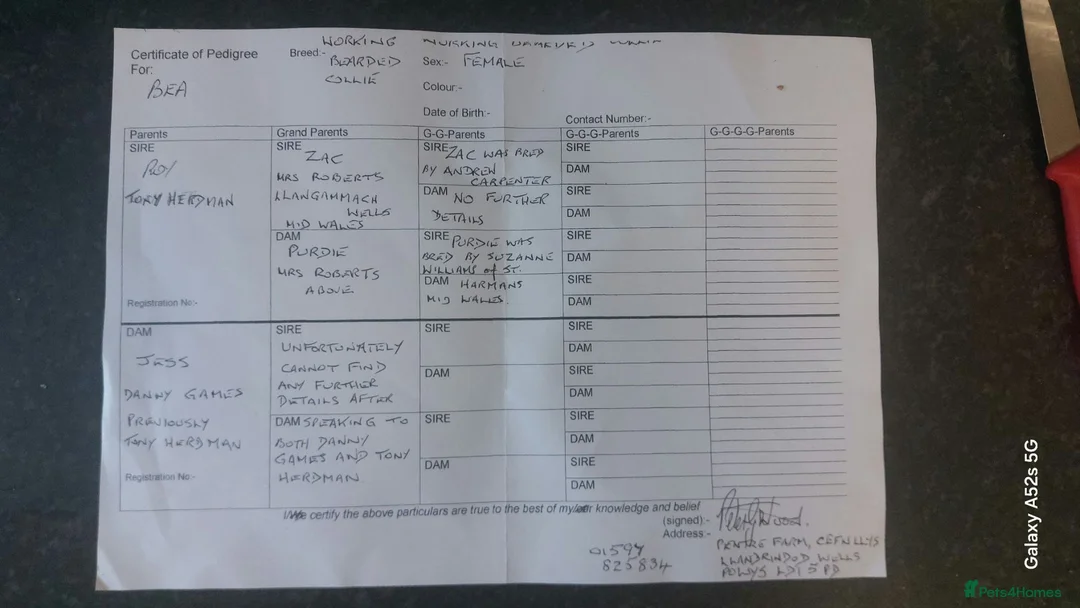 Certificate of Pedigree
For:
BEA
Breed:-
WORKING
BEARDED
COLLIE
Sex:- FEMALE
Colour:-
Date of Birth:-
Contact Number:-
Parents
Grand Parents
G-G-Parents
G-G-G-Parents
G-G-G-G-Parents
SIRE
ROY
TONY HERDMAN
Registration No:-
SIRE
ZAC
MRS ROBERTS
LLANGAMMACH
WELLS
MID WALES
DAM
PURDIE
MRS ROBERTS
ABOVE
SIRE ZAC WAS BRED
BY ANDREW
CARPENTER
DAM NO FURTHER
DETAILS
SIRE PURDIE WAS
BRED BY SUZANNE
WILLIAMS of ST.
DAM HARMANS
MID WALES.
SIRE
DAM
SIRE
DAM
SIRE
DAM
SIRE
DAM
DAM
JESS
DANNY GAMES
PREVIOUSLY
TONY HERDMAN
Registration No:-
SIRE
UNFORTUNATELY
CANNOT FIND
ANY FURTHER
DETAILS AFTER
DAM SPEAKING TO
BOTH DANNY
GAMES AND TONY
HERDMAN
SIRE
DAM
SIRE
DAM
SIRE
DAM
SIRE
DAM
SIRE
DAM
SIRE
DAM
I/We certify the above particulars are true to the best of my/our knowledge and belief
(signed):-
Address:-
PENTRE FARM, CEFNLLYS
LLANDRINDOD WELLS
POWYS LD1 5PD
01597
825834
Galaxy A52s 5G
Pets4Homes